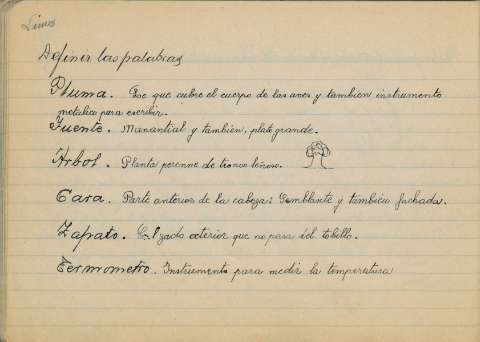 Definir las palabras
Pluma. Ese que cubre el cuerpo de las aves y tambien instrumento
metalico para escribir.
Fuente. Manantial y tambien, plato grande.
Arbol. Planta perenne de tronco leñoso.
Cara. Parte anterior de la cabeza: Semblante y tambien fachada.
Zapato. Calzado exterior que no pasa del tobillo.
Termometro. Instrumento para medir la temperatura